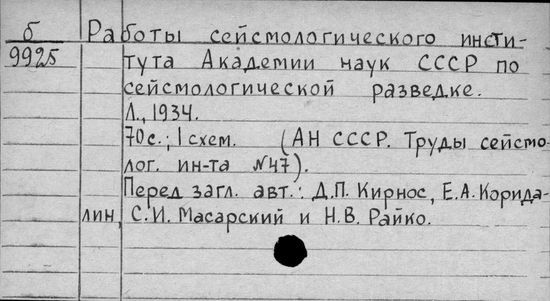 б Работы сейсмологического инсти-
9925 тута Академии наук СССР по
сейсмологической разведке.
Л., 1934.
70с.; 1 схем. (АН СССР. Труды сейсмо-
лог. ин-та №47).
Перед загл. авт.: Д.П. Кирнос, Е.А. Корида-
лин, С.И. Масарский и Н.В. Райко.